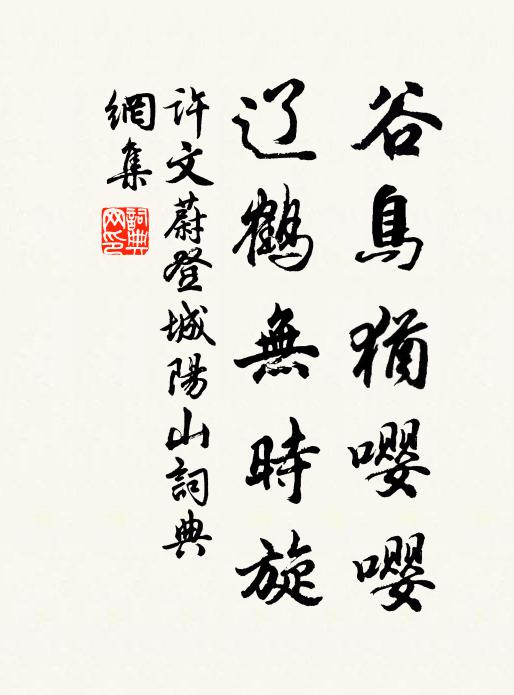 谷鳥猶嘤嘤
辽鶴無時旋
許文蔚登城陽山詞典
網集
詞典网印